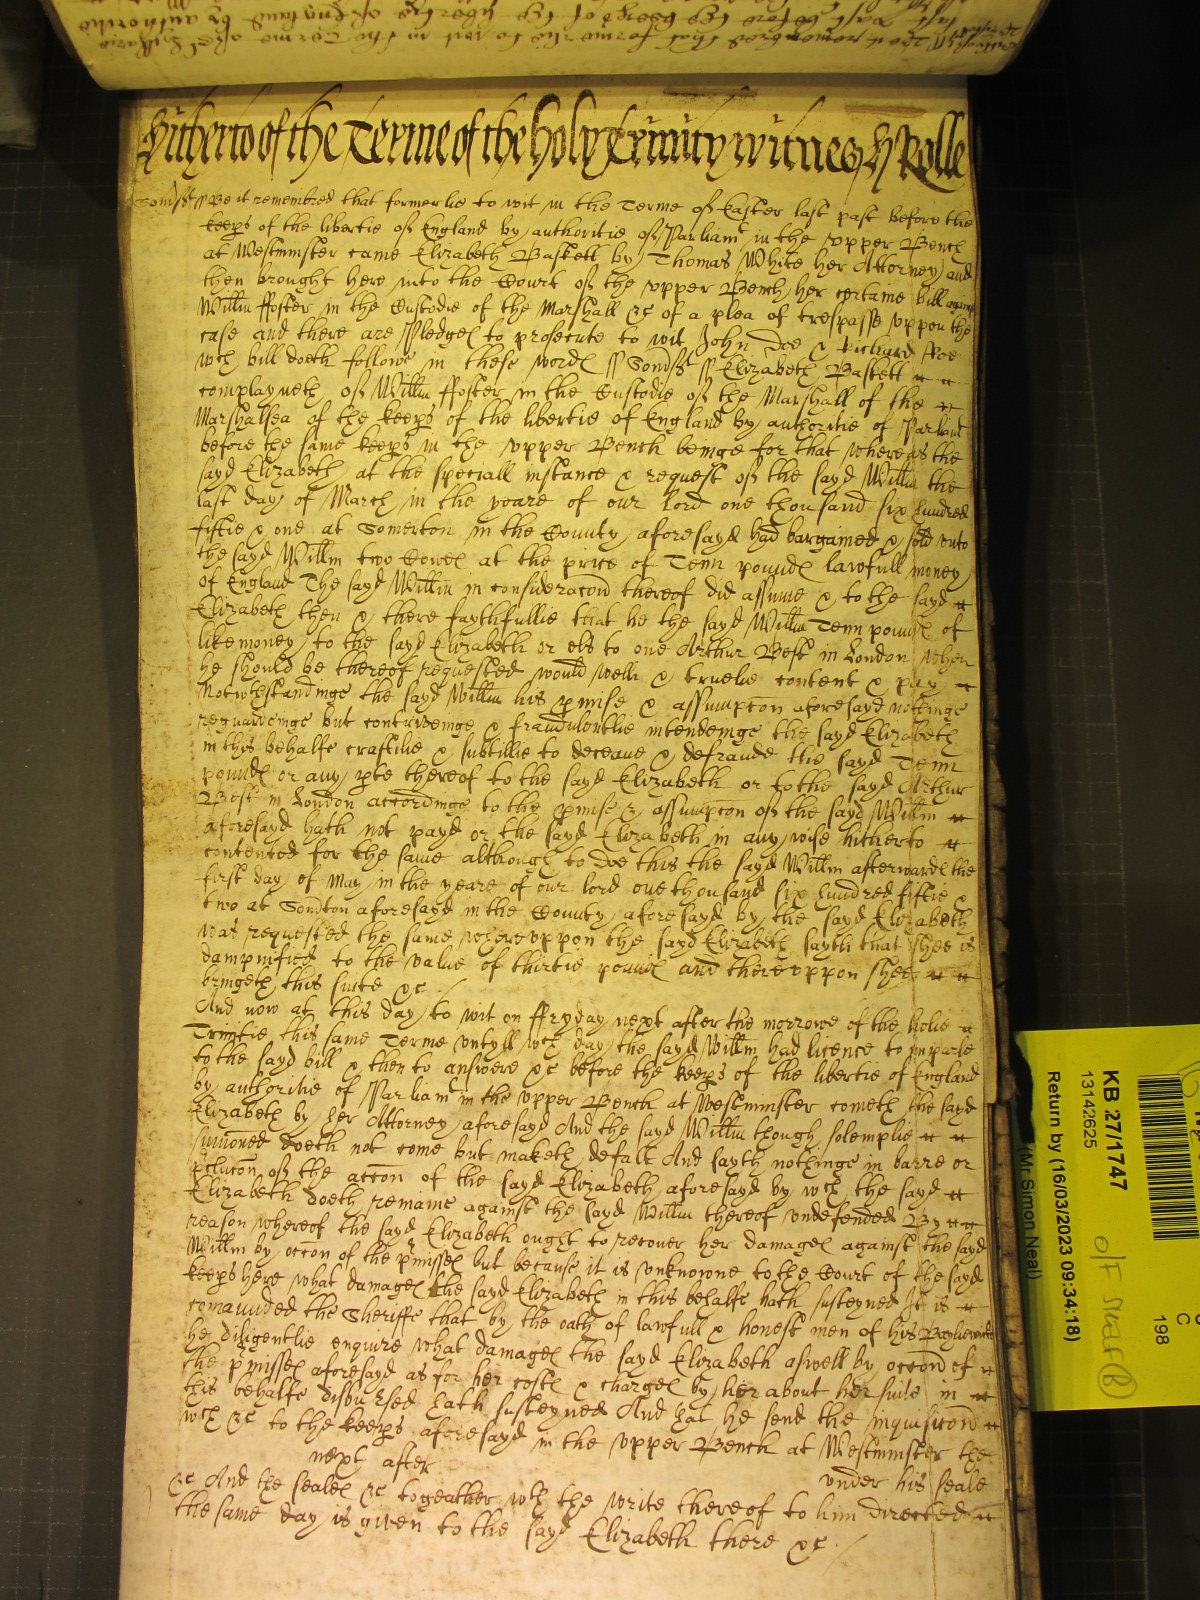 Hitherto of the Terme of the holy Trinity witnes H Rolle
Somst ss Be it remembred that formerlie to wit in the Terme of Easter last past before the
keeps of the libertie of England by authoritie of Parliamt in the vpper Bench
at Westminster came Elizabeth Baskett by Thomas White her Attorney and
then brought here into the Court of the vpper Bench her certaine bill against
Willm ffoster in the Custodie of the Marshall &c of a plea of trespasse vppon the
case and there are Pledges to prosecute to wit John Doe & Richard Roe
wch bill doeth followe in these words ss Somst ss Elizabeth Baskett
complayneth of Willm ffoster in the Custodie of the Marshall of the
Marshalsea of the keeps of the libertie of England by authoritie of Parliamt
before the same keeps in the vpper Bench beinge for that whereas the
sayd Elizabeth at the speciall instance & request of the sayd Willm the
last day of March in the yeare of our Lord one thousand six hundred
fiftie & one at Somerton in the County aforesayd had bargained & sold vnto
the sayd Willm two Cowes at the price of Tenn pounds lawfull money
of England The sayd Willm in consideracon thereof did assume & to the sayd
Elizabeth then & there faythfullie that he the sayd Willm Tenn pounds of
like money to the sayd Elizabeth or els to one Arthur Best in London when
he should be thereof requested would well & truelie content & pay
Notwithstandinge the sayd Willm his pmise & assumpcon aforesayd nothinge
regardeinge but contriveinge & fraudulentlie intendeinge the sayd Elizabeth
in this behalfe craftilie & subtillie to deceave & defraude the sayd Tenn
pounds or any pte thereof to the sayd Elizabeth or to the sayd Arthur
Best in London accordinge to the pmise & assumpcon of the sayd Willm
aforesayd hath not payd or the sayd Elizabeth in any wise hitherto
contented for the same although to doe this the sayd Willm afterwards the
first day of May in the yeare of our lord one thousand six hundred fiftie &
two at Somton aforesayd in the County aforesayd by the sayd Elizabeth
was requested the same wherevppon the sayd Elizabeth sayth that shee is
dampnified to the value of thirtie pounds and therevppon shee
bringeth this suite &c
And now at this day to wit on ffryday next after the morrowe of the holie
Trinitie this same Terme vntyll wch day the sayd Willm had licence to imparle
to the sayd bill & then to answere &c before the keeps of the libertie of England
by authoritie of Parliamt in the vpper Bench at Westminster cometh the sayd
Elizabeth by her Attorney aforesayd And the sayd Willm though solemplie
sumoned doeth not come but maketh defalt And sayth nothinge in barre or
pclucon of the accon of the sayd Elizabeth aforesayd by wch the sayd
Elizabeth doeth remaine against the sayd Willm thereof vndefended By
reason whereof the sayd Elizabeth ought to recover her damages against the sayd
Willm by occon of the pmisses but because it is vnknowne to the Court of the sayd
keeps here what damages the sayd Elizabeth in this behalfe hath susteyned It is
comaunded the Sheriffe that by the oath of lawfull & honest men of his Bayliewicke
he diligentlie enquire what damages the sayd Elizabeth aswell by occon of
the pmisses aforesayd as for her costs & charges by her about her suite in
this behalfe disbursed hath susteyned And that he send the inquisicon
wch &c to the keeps aforesayd in the vpper Bench at Westminster the
next after under his seale
&c And the seales &c togeather wth the write thereof to him directed
the same day is given to the sayd Elizabeth there &c
KB 27/1747
13142625
Return by (16/03/2023 09:34:18)
(Mr Simon Neal)
C
198